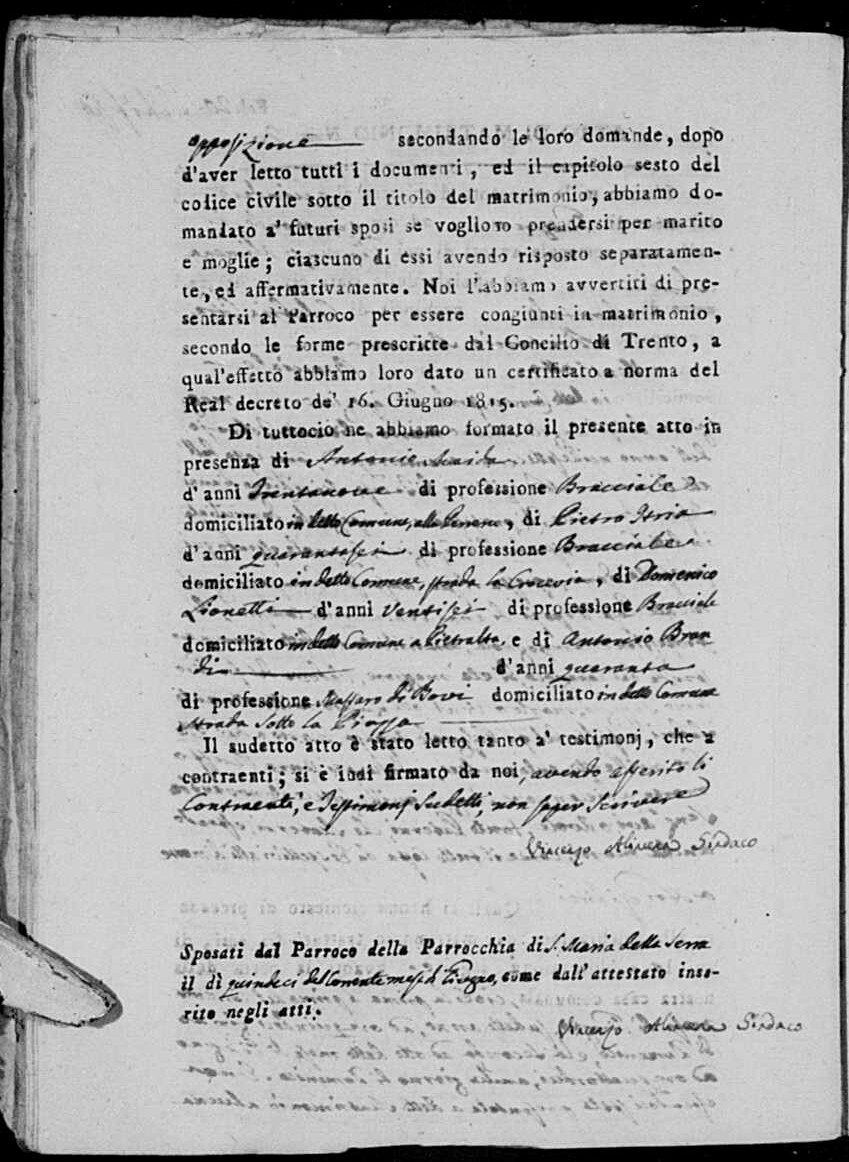 opposizione secondando le loro domande, dopo
d'aver letto tutti i documenti, ed il capitolo sesto del
codice civile sotto il titolo del matrimonio, abbiamo do-
mandato a' futuri sposi se vogliono prendersi per marito
e moglie; ciascuno di essi avendo risposto separatamen-
te, ed affermativamente. Noi l'abbiamo avvertiti di pre-
sentarsi al Parroco per essere congiunti in matrimonio,
secondo le forme prescritte dal Concilio di Trento, a
qual'effetto abbiamo loro dato un certificato a norma del
Real decreto de' 16. Giugno 1815.
Di tuttociò ne abbiamo formato il presente atto in
presenza di Antonio
d'anni Trentanove di professione Bracciale
domiciliato in detto Comune, alle, di Pietro Istria
d'anni quarantasei di professione Bracciale
domiciliato in detto Comune, strada la Crocevia, di Domenico
Lionetti d'anni Ventisei di professione Bracciale
domiciliato in detto Comune a Pietralta, e di Antonio Bran
di d'anni quaranta
di professione Massaro di Bovi domiciliato in detto Comune
strada sotto la Piazza
Il sudetto atto è stato letto tanto a' testimonj, che a
contraenti; si è indi firmato da noi, avendo asserito li
Contraenti, e Testimonj sudetti, non saper scrivere
Vincenzo Sindaco
Sposati dal Parroco della Parrocchia di S. Maria della Serra
il dì quindeci del Corrente mese di Giugno, come dall'attestato inse-
rito negli atti.
Vincenzo Sindaco